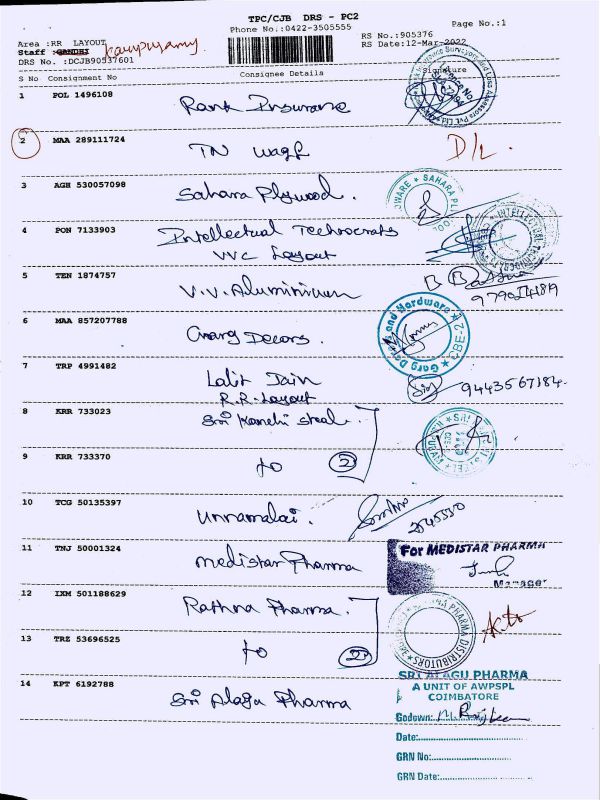 TPC/CJB DRS - PC2
Phone No.:0422-3505555
Page No.:1
Area :RR LAYOUT
RS No.:905376
Staff :GANDHI Karupusamy.
RS Date:12-Mar-2022
DRS No. :DCJB90537601
S No Consignment No Consignee Details Signature
1 POL 1496108 Rank Insurance
2 MAA 289111724 TN waqf D/L.
3 AGH 530057098 Sahara Plywood.
4 PON 7133903 Intellectual Technocrats
VVC Layout
5 TEN 1874757 V.V. Aluminium
6 MAA 857207788 Garg Decors.
Garg Decors and Hardware CBE-2
7 TRP 4991482 Lalit Jain 9443567184
R.R. Layout
8 KRR 733023 Sri Kanchi steal.
9 KRR 733370 to 2
10 TCG 50135397 Unnamalai.
11 TNJ 50001324 Medistar Pharma
For MEDISTAR PHARMA
Manager
12 IXM 501188629 Rathna Pharma.
PHARMA DISTRIBUTORS
13 TRZ 53696525 to 2
14 KPT 6192788 Sri Alagu Pharma
SRI ALAGU PHARMA
A UNIT OF AWPSPL
COIMBATORE
Godown:
Date:
GRN No:
GRN Date: